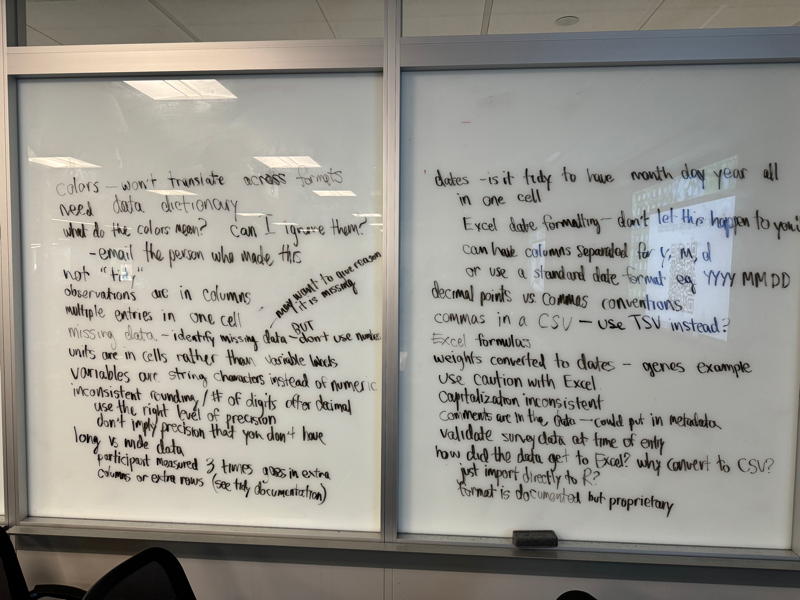 colors - won't translate across formats
need data dictionary
what do the colors mean? can I ignore them?
- email the person who made this
not "tidy"
observations are in columns
multiple entries in one cell
may want to give reason
it is missing
BUT
missing data - identify missing data - don't use numbers
units are in cells rather than variable labels
variables are string characters instead of numeric
inconsistent rounding / # of digits after decimal
use the right level of precision
don't imply precision that you don't have
long vs wide data
participant measured 3 times goes in extra
columns or extra rows (see tidy documentation)
dates - is it tidy to have month day year all
in one cell
Excel date formatting - don't let this happen to you!
can have columns separated for y, m, d
or use a standard date format eg YYYY MM DD
decimal points vs commas conventions
commas in a CSV - use TSV instead?
Excel formulas
weights converted to dates - genes example
use caution with Excel
capitalization inconsistent
comments are in the data - could put in metadata
validate survey data at time of entry
how did the data get to Excel? why convert to CSV?
just import directly to R?
format is documented but proprietary